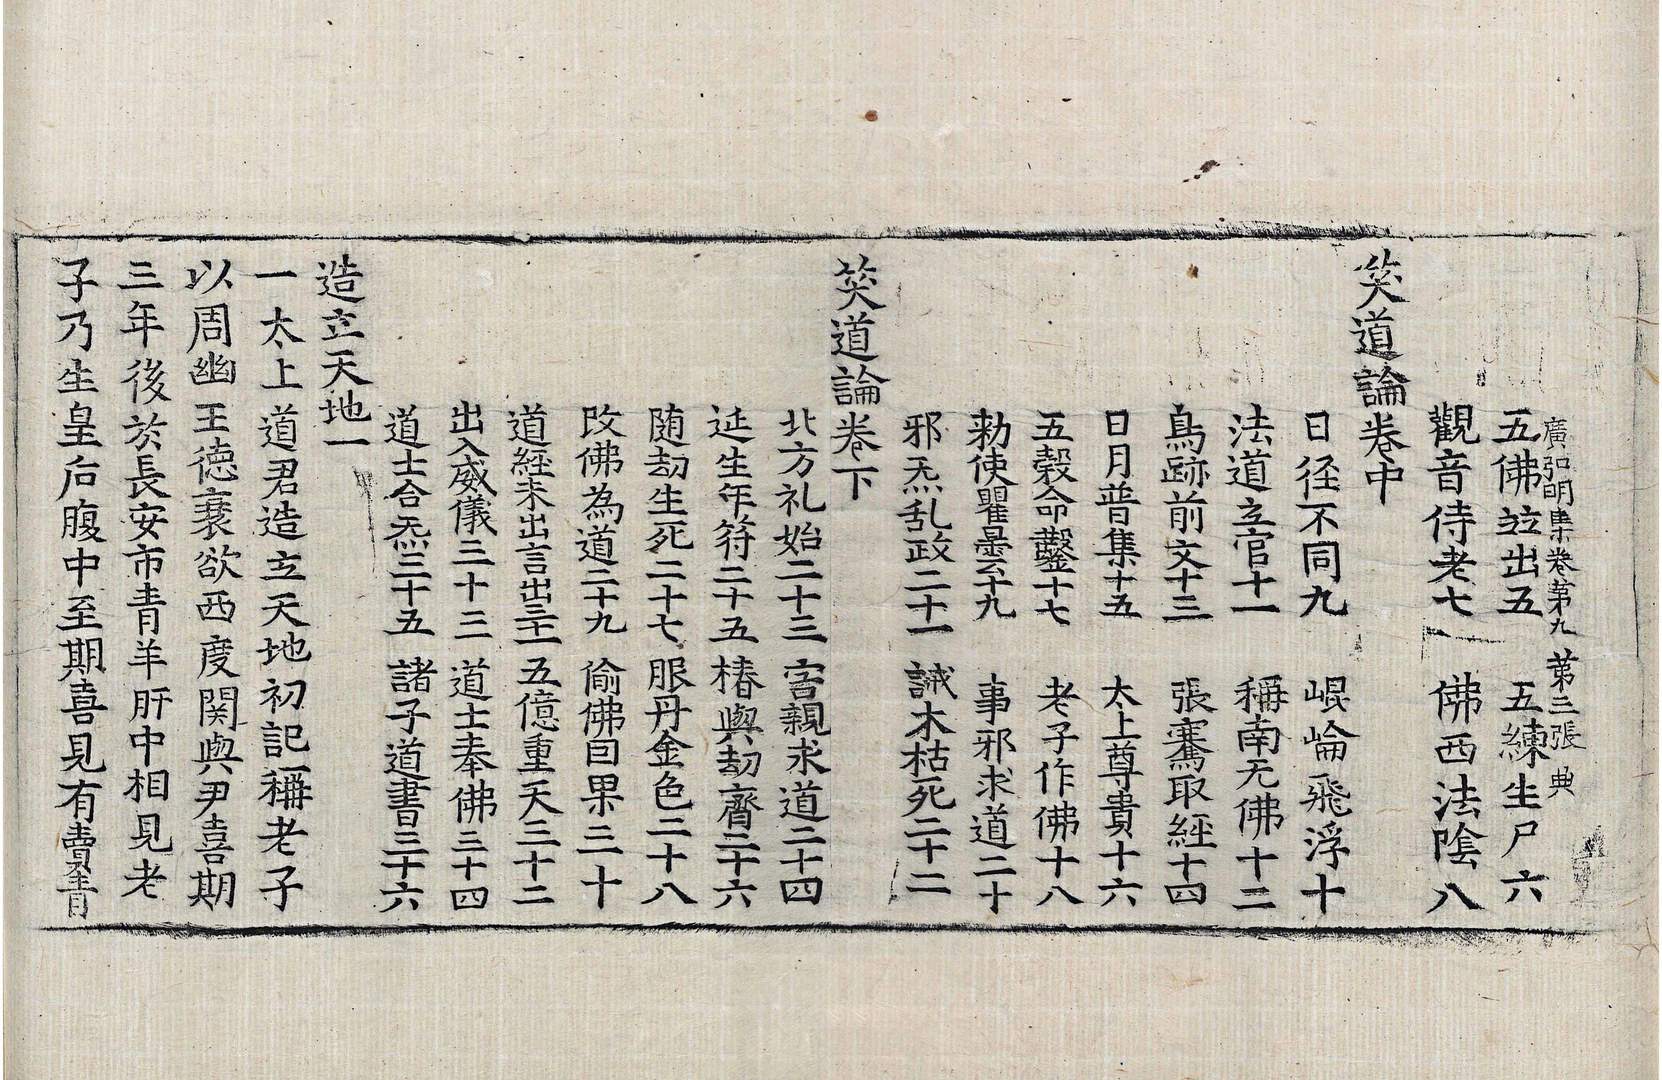 廣弘明集卷第九　第三張　典
五佛並出五　五練生尸六
觀音侍老七　佛西法陰八
笑道論卷中
日径不同九　崐崘飛浮十
法道立官十一　稱南无佛十二
鳥跡前文十三　張騫取經十四
日月普集十五　太上尊貴十六
五穀命鑿十七　老子作佛十八
勑使瞿曇十九　事邪求道二十
邪炁乱政二十一　誡木枯死二十二
笑道論卷下
北方礼始二十三　害親求道二十四
延生年符二十五　椿與劫齊二十六
随劫生死二十七　服丹金色二十八
改佛為道二十九　偷佛因果三十
道經未出言出三十一　五億重天三十二
出入威儀三十三　道士奉佛三十四
道士合炁三十五　諸子道書三十六
造立天地一
一太上道君造立天地初記稱老子
以周幽王徳衰欲西度関與尹喜期
三年後於長安市青羊肝中相見老
子乃生皇后腹中至期喜見有賣青